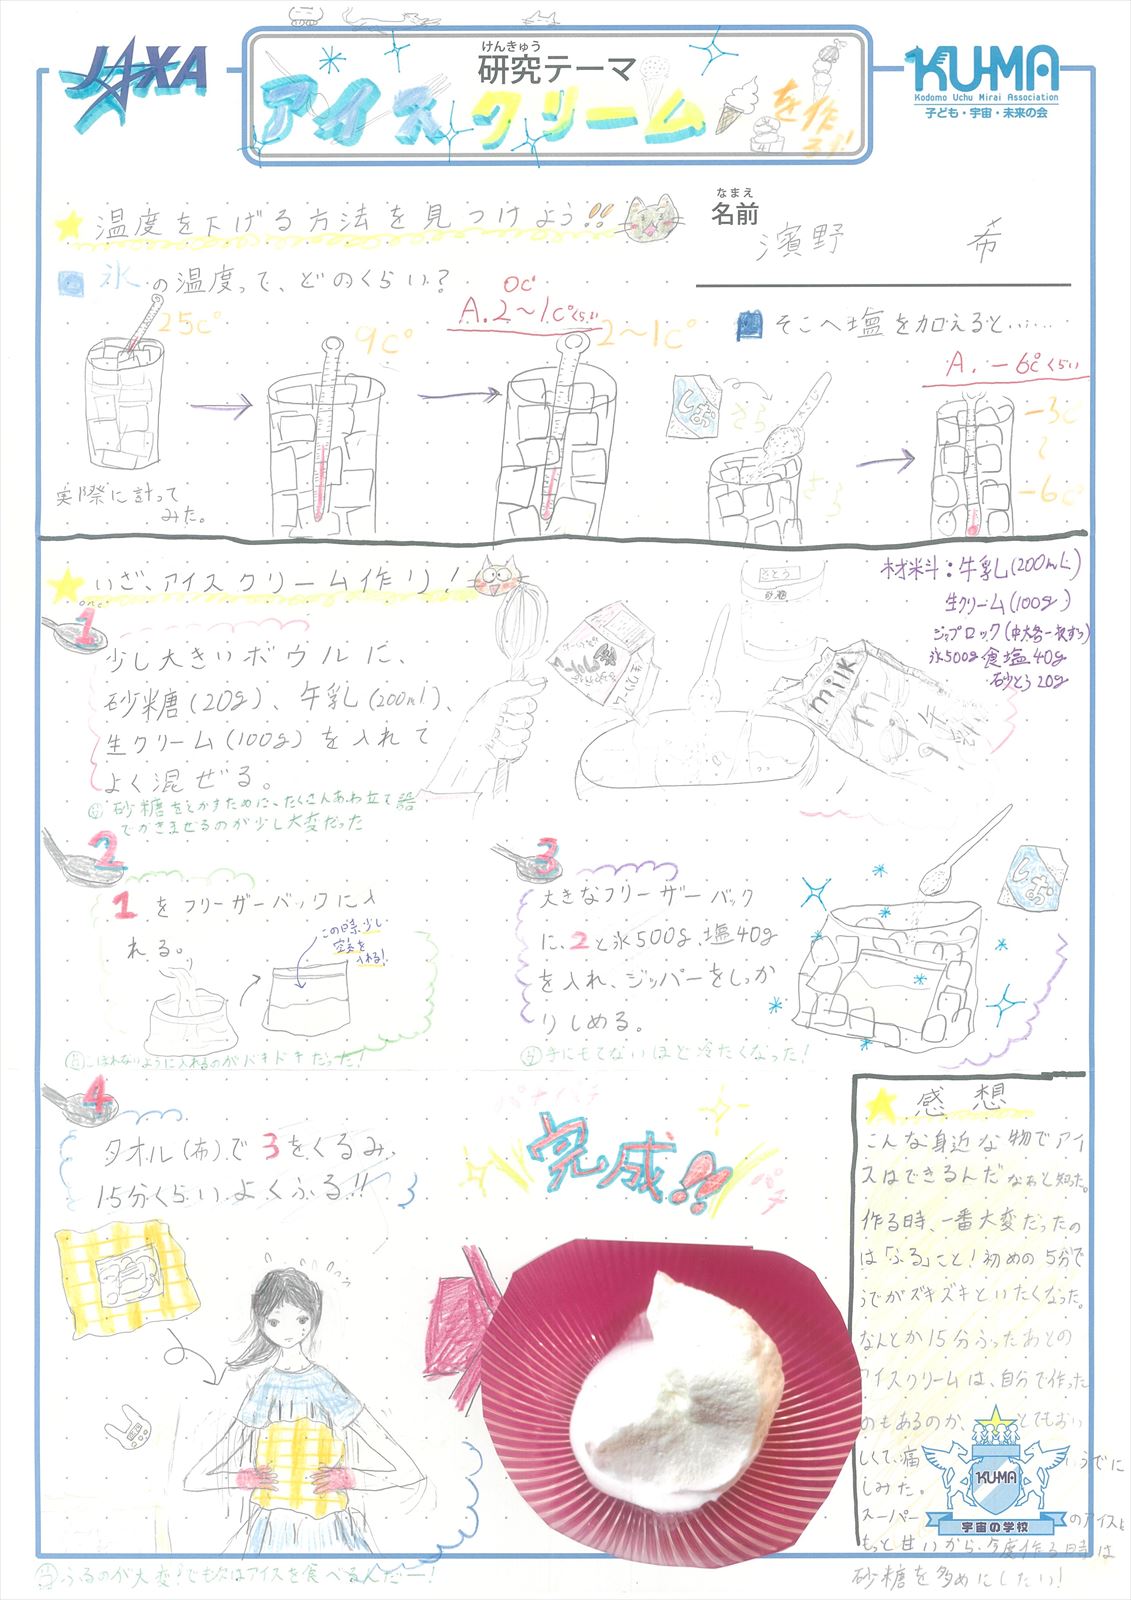 JAXA
けんきゅう
研究テーマ
アイスクリームを作ろう!
KU-MA
Kodomo Uchu Mirai Association
子ども・宇宙・未来の会
なまえ
名前
濱野 希
温度を下げる方法を見つけよう!!
氷の温度って、どのくらい?
0c°
A. 2〜1c°くらい
25c°
9c°
2〜1c°
実際に計って
みた。
そこへ塩を加えると……
A. −6c°くらい
しお
さら
さら
−3c°
〜
−6c°
いざ、アイスクリーム作り!
材料:牛乳(200mL)
生クリーム(100g)
ジップロック(中大各一枚ずつ)
氷500g 食塩40g
砂とう20g
1
少し大きいボウルに、
砂糖(20g)、牛乳(200mL)、
生クリーム(100g)を入れて
よく混ぜる。
砂糖をとかすために、たくさんあわ立て器
でかきまぜるのが少し大変だった
さとう
砂糖
milk
2
1をフリーザーバックに入
れる。
この時、少し
空気を
入れる!
こぼれないように入れるのがドキドキだった!
3
大きなフリーザーバック
に、2と氷500g、塩40g
を入れ、ジッパーをしっか
りしめる。
手にもてないほど冷たくなった!
しお
4
タオル(布)で3をくるみ、
15分くらいよくふる!!
パチパチ
完成!!
パチ
ふるのが大変!でも次はアイスを食べるんだー!
感想
こんな身近な物でアイ
スはできるんだなぁと知った。
作る時、一番大変だったの
は「ふる」こと!初めの5分で
うでがズキズキといたくなった。
なんとか15分ふったあとの
アイスクリームは、自分で作った
のもあるのか、とてもおい
しくて、痛いうでに
しみた。
スーパーのアイスは
もっと甘いから、今度作る時は
砂糖を多めにしたい!
KU-MA
宇宙の学校